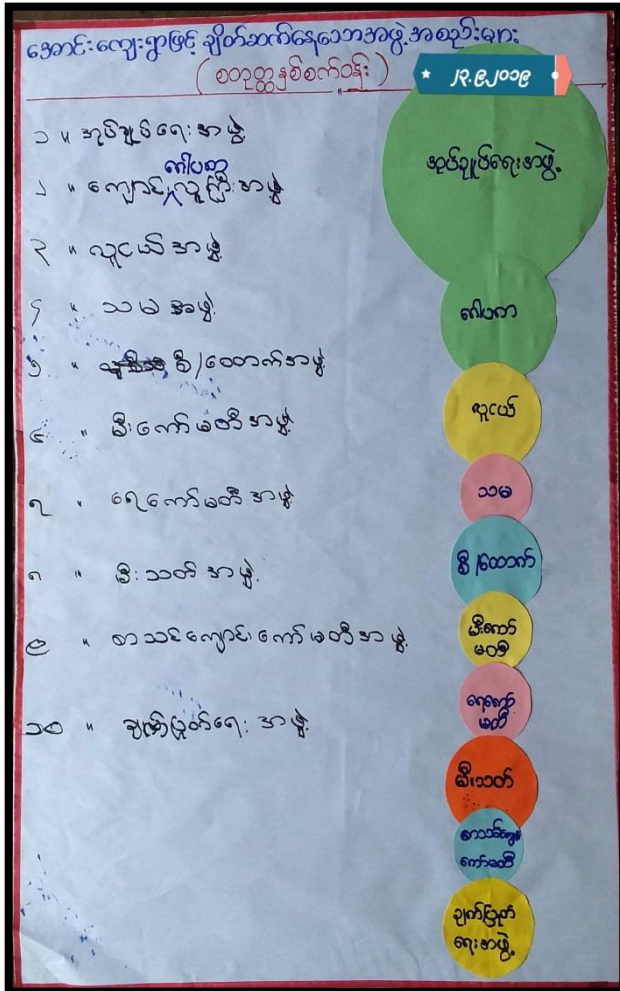 အောင်းကျေးရွာဖြင့် ချိတ်ဆက်နေသောအဖွဲ့အစည်းများ
(စတုတ္ထနှစ်စက်ဝန်း)
၂၃.၉.၂၀၁၉
၁ ။ အုပ်ချုပ်ရေးအဖွဲ့
ဂေါပက
၂ ။ ကျောင်းလူကြီးအဖွဲ့
၃ ။ လူငယ်အဖွဲ့
၄ ။ သမအဖွဲ့
၅ ။ စီ/ထောက်အဖွဲ့
၆ ။ မီးကော်မတီအဖွဲ့
၇ ။ ရေကော်မတီအဖွဲ့
၈ ။ မီးသတ်အဖွဲ့
၉ ။ စာသင်ကျောင်းကော်မတီအဖွဲ့
၁၀ ။ ချက်ပြုတ်ရေးအဖွဲ့
အုပ်ချုပ်ရေးအဖွဲ့
ဂေါပက
လူငယ်
သမ
စီ/ထောက်
မီးကော်
မတီ
ရေကော်
မတီ
မီးသတ်
စာသင်ကျောင်း
ကော်မတီ
ချက်ပြုတ်
ရေးအဖွဲ့